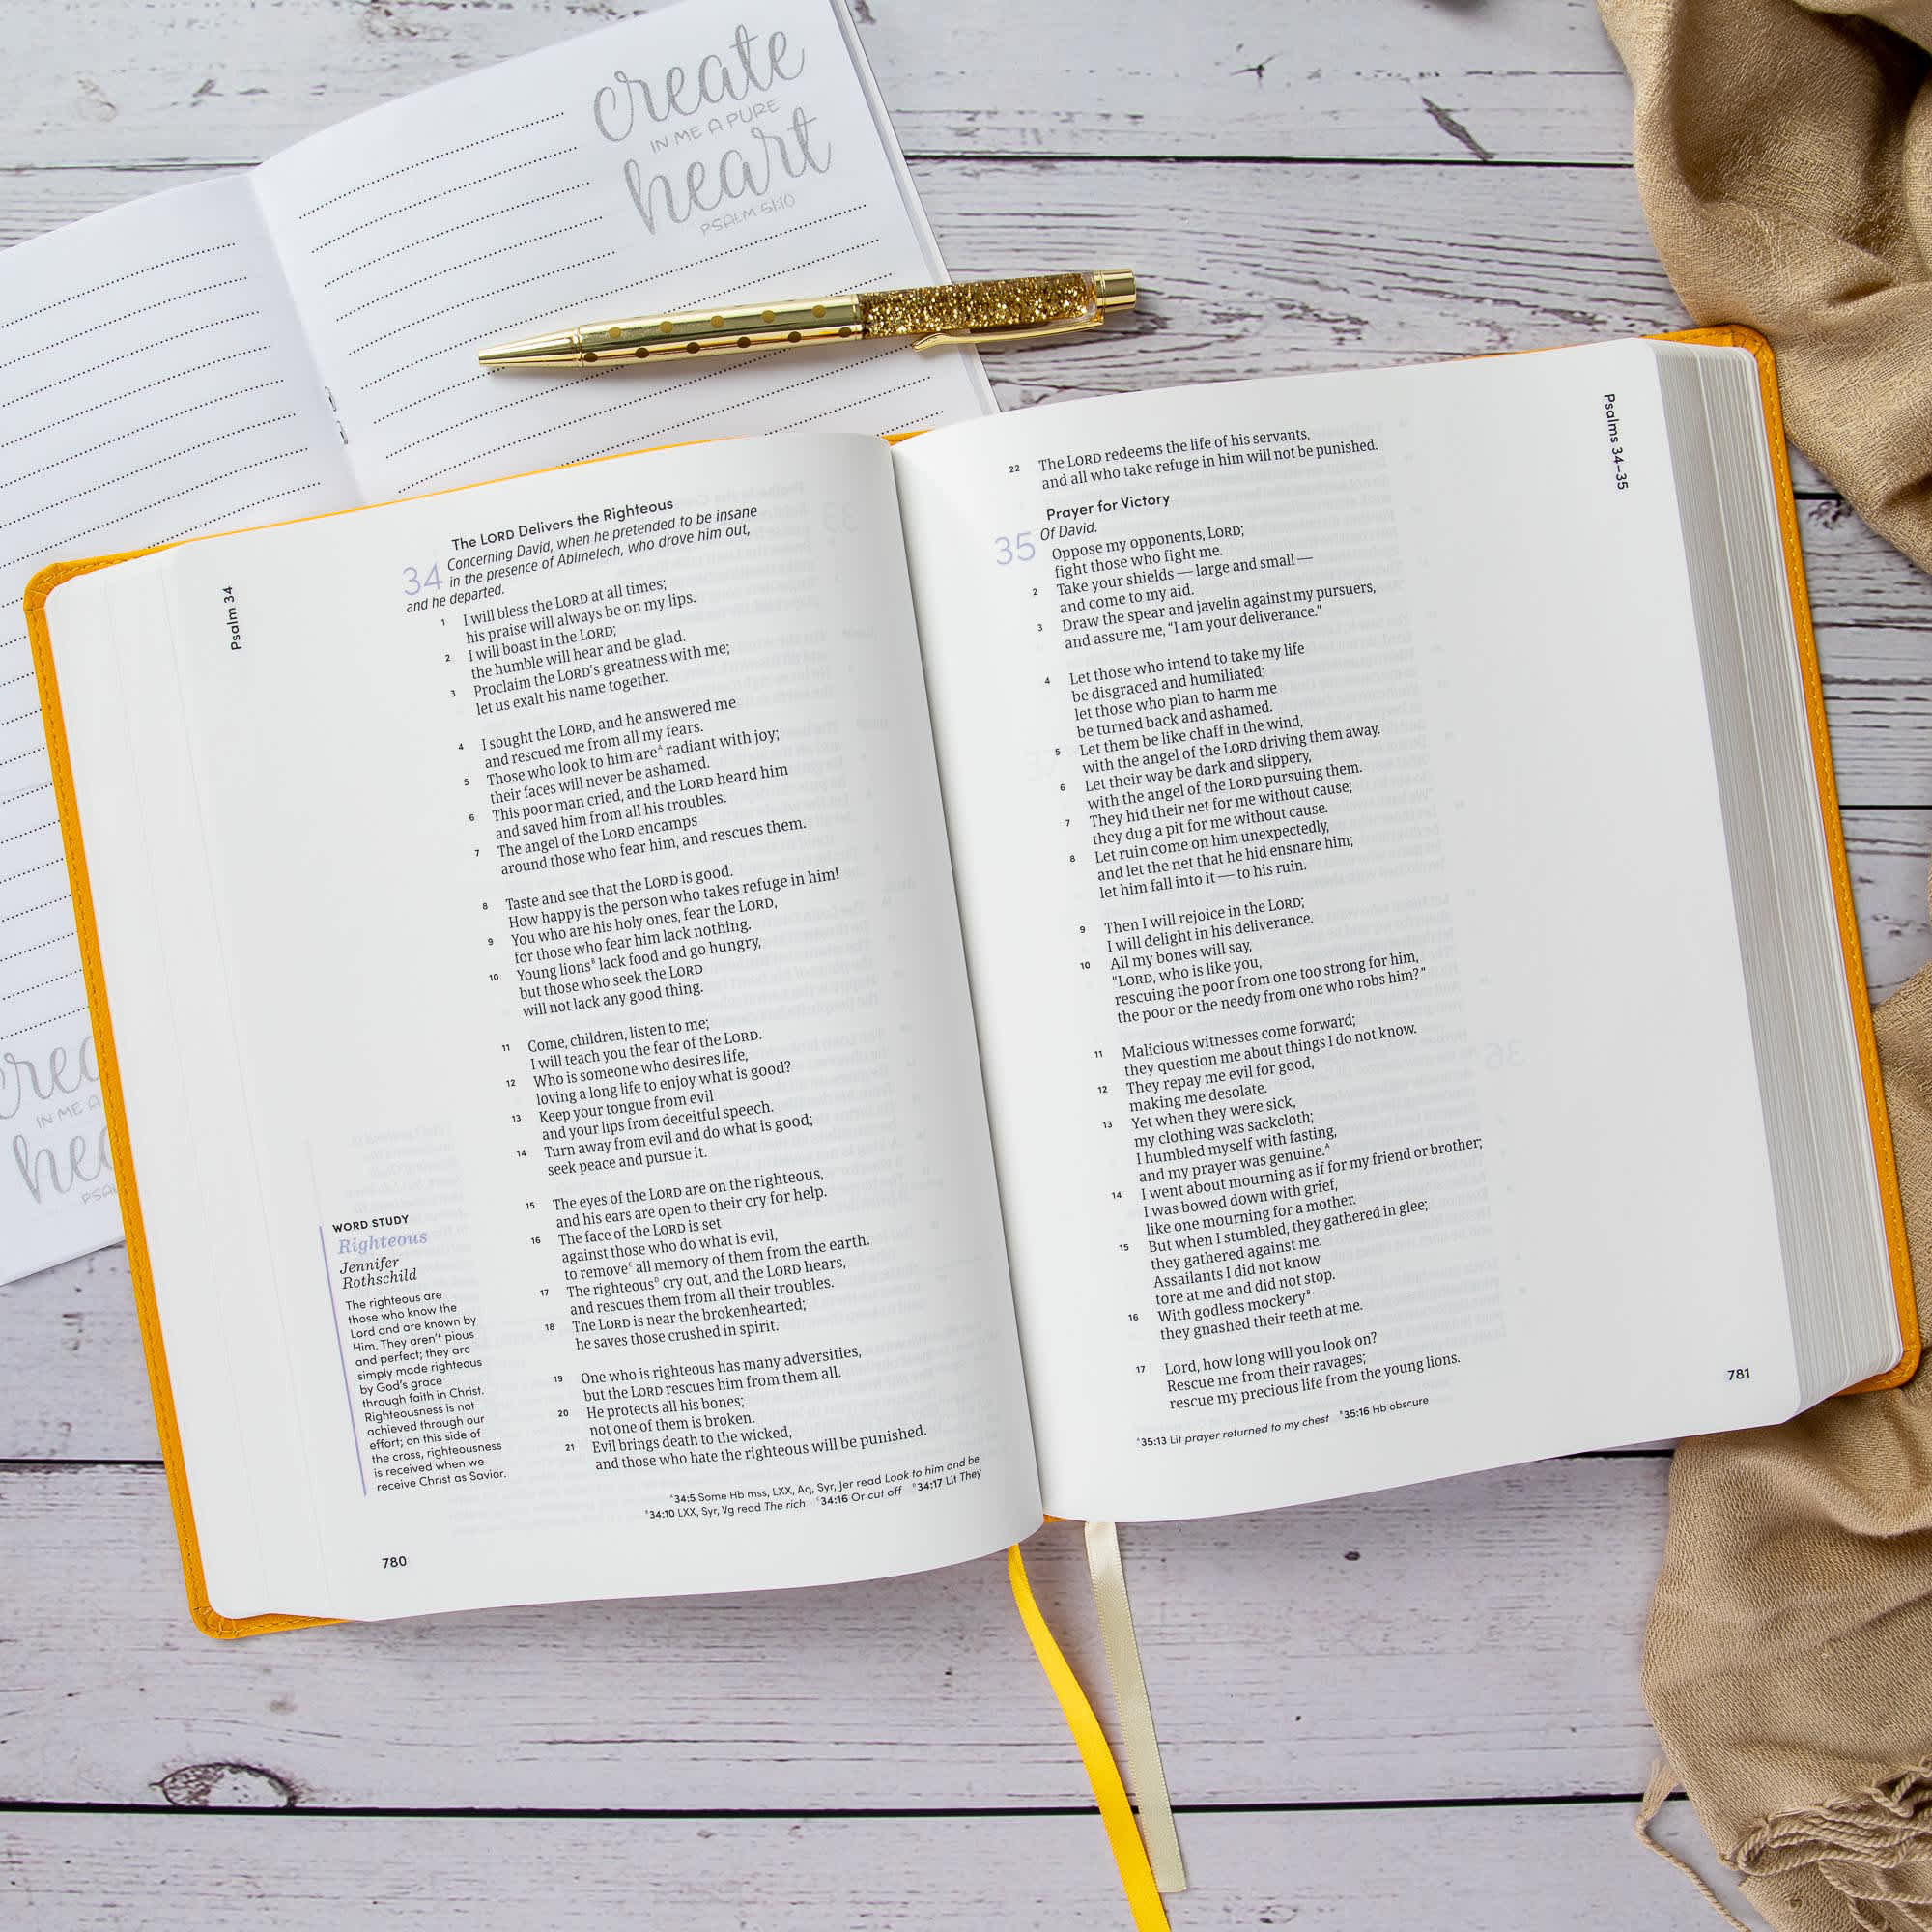 create
IN ME A PURE
heart
PSALM 51:10
IN ME A
Psalm 34
The LORD Delivers the Righteous
34
Concerning David, when he pretended to be insane
in the presence of Abimelech, who drove him out,
and he departed.
1 I will bless the LORD at all times;
his praise will always be on my lips.
2 I will boast in the LORD;
the humble will hear and be glad.
3 Proclaim the LORD's greatness with me;
let us exalt his name together.
4 I sought the LORD, and he answered me
and rescued me from all my fears.
5 Those who look to him are^A radiant with joy;
their faces will never be ashamed.
6 This poor man cried, and the LORD heard him
and saved him from all his troubles.
7 The angel of the LORD encamps
around those who fear him, and rescues them.
8 Taste and see that the LORD is good.
How happy is the person who takes refuge in him!
9 You who are his holy ones, fear the LORD,
for those who fear him lack nothing.
10 Young lions^B lack food and go hungry,
but those who seek the LORD
will not lack any good thing.
11 Come, children, listen to me;
I will teach you the fear of the LORD.
12 Who is someone who desires life,
loving a long life to enjoy what is good?
13 Keep your tongue from evil
and your lips from deceitful speech.
14 Turn away from evil and do what is good;
seek peace and pursue it.
15 The eyes of the LORD are on the righteous,
and his ears are open to their cry for help.
16 The face of the LORD is set
against those who do what is evil,
to remove^C all memory of them from the earth.
17 The righteous^D cry out, and the LORD hears,
and rescues them from all their troubles.
18 The LORD is near the brokenhearted;
he saves those crushed in spirit.
19 One who is righteous has many adversities,
but the LORD rescues him from them all.
20 He protects all his bones;
not one of them is broken.
21 Evil brings death to the wicked,
and those who hate the righteous will be punished.
WORD STUDY
Righteous
Jennifer
Rothschild
The righteous are
those who know the
Lord and are known by
Him. They aren't pious
and perfect; they are
simply made righteous
by God's grace
through faith in Christ.
Righteousness is not
achieved through our
effort; on this side of
the cross, righteousness
is received when we
receive Christ as Savior.
^A 34:5 Some Hb mss, LXX, Aq, Syr, Jer read Look to him and be
^B 34:10 LXX, Syr, Vg read The rich ^C 34:16 Or cut off ^D 34:17 Lit They
780
Psalms 34–35
22 The LORD redeems the life of his servants,
and all who take refuge in him will not be punished.
Prayer for Victory
35
Of David.
Oppose my opponents, LORD;
fight those who fight me.
2 Take your shields — large and small —
and come to my aid.
3 Draw the spear and javelin against my pursuers,
and assure me, "I am your deliverance."
4 Let those who intend to take my life
be disgraced and humiliated;
let those who plan to harm me
be turned back and ashamed.
5 Let them be like chaff in the wind,
with the angel of the LORD driving them away.
6 Let their way be dark and slippery,
with the angel of the LORD pursuing them.
7 They hid their net for me without cause;
they dug a pit for me without cause.
8 Let ruin come on him unexpectedly,
and let the net that he hid ensnare him;
let him fall into it — to his ruin.
9 Then I will rejoice in the LORD;
I will delight in his deliverance.
10 All my bones will say,
"LORD, who is like you,
rescuing the poor from one too strong for him,
the poor or the needy from one who robs him?"
11 Malicious witnesses come forward;
they question me about things I do not know.
12 They repay me evil for good,
making me desolate.
13 Yet when they were sick,
my clothing was sackcloth;
I humbled myself with fasting,
and my prayer was genuine.^A
14 I went about mourning as if for my friend or brother;
I was bowed down with grief,
like one mourning for a mother.
15 But when I stumbled, they gathered in glee;
they gathered against me.
Assailants I did not know
tore at me and did not stop.
16 With godless mockery^B
they gnashed their teeth at me.
17 Lord, how long will you look on?
Rescue me from their ravages;
rescue my precious life from the young lions.
^A 35:13 Lit prayer returned to my chest ^B 35:16 Hb obscure
781